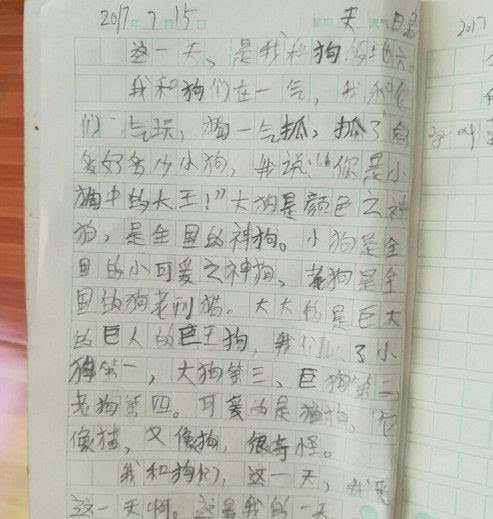 2017年7月15日 星期 天 天气 日
这一天，是我和狗
我和狗们在一气，我和它
们一气玩，狗一气抓，抓了
多好多少小狗，我说："你是小
狗中的大王！"大狗是颜色之神
狗，是全国的神狗。小狗是全
国的小可爱之神狗，老狗是全
国的狗老利猫。大大的是巨大
的巨人的巨王狗，我们 了小
狗第一，大狗第三、巨狗第二
老狗第四。可爱的是猫狗，它
像猫，又像狗，很奇怪。
我和狗们，这一天，我爱
这一天啊。这是我的一天
2017